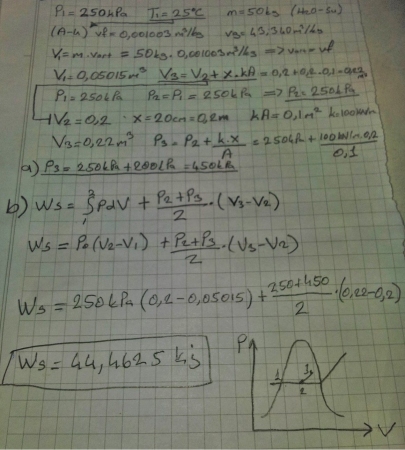 P₁ = 250kPa T₁ = 25°C m = 50kg (H₂O-Su)
(A-4) vf = 0,001003 m³/kg vg = 43,340 m³/kg
V₁ = m.vort = 50kg. 0,001003 m³/kg => vort = vf
V₁ = 0,05015 m³ V₃ = V₂ + x.kA = 0,2+0,2.0,1=0,22
P₁ = 250kPa P₂ = P₁ = 250kPa => P₂ = 250kPa
V₂ = 0,2 x = 20cm = 0,2m kA = 0,1m² k=100kN/m
V₃ = 0,22 m³ P₃ = P₂ + k.x/A = 250kPa + 100kN/m.0,2/0,1
a) P₃ = 250kPa + 200kPa = 450kPa
b) Ws = ∫₁² PdV + P₂+P₃/2 . (V₃-V₂)
Ws = P₀ (V₂-V₁) + P₂+P₃/2 . (V₃-V₂)
Ws = 250kPa (0,2-0,05015) + 250+450/2 . (0,22-0,2)
Ws = 44,4625 kj
P
1 2 3
V